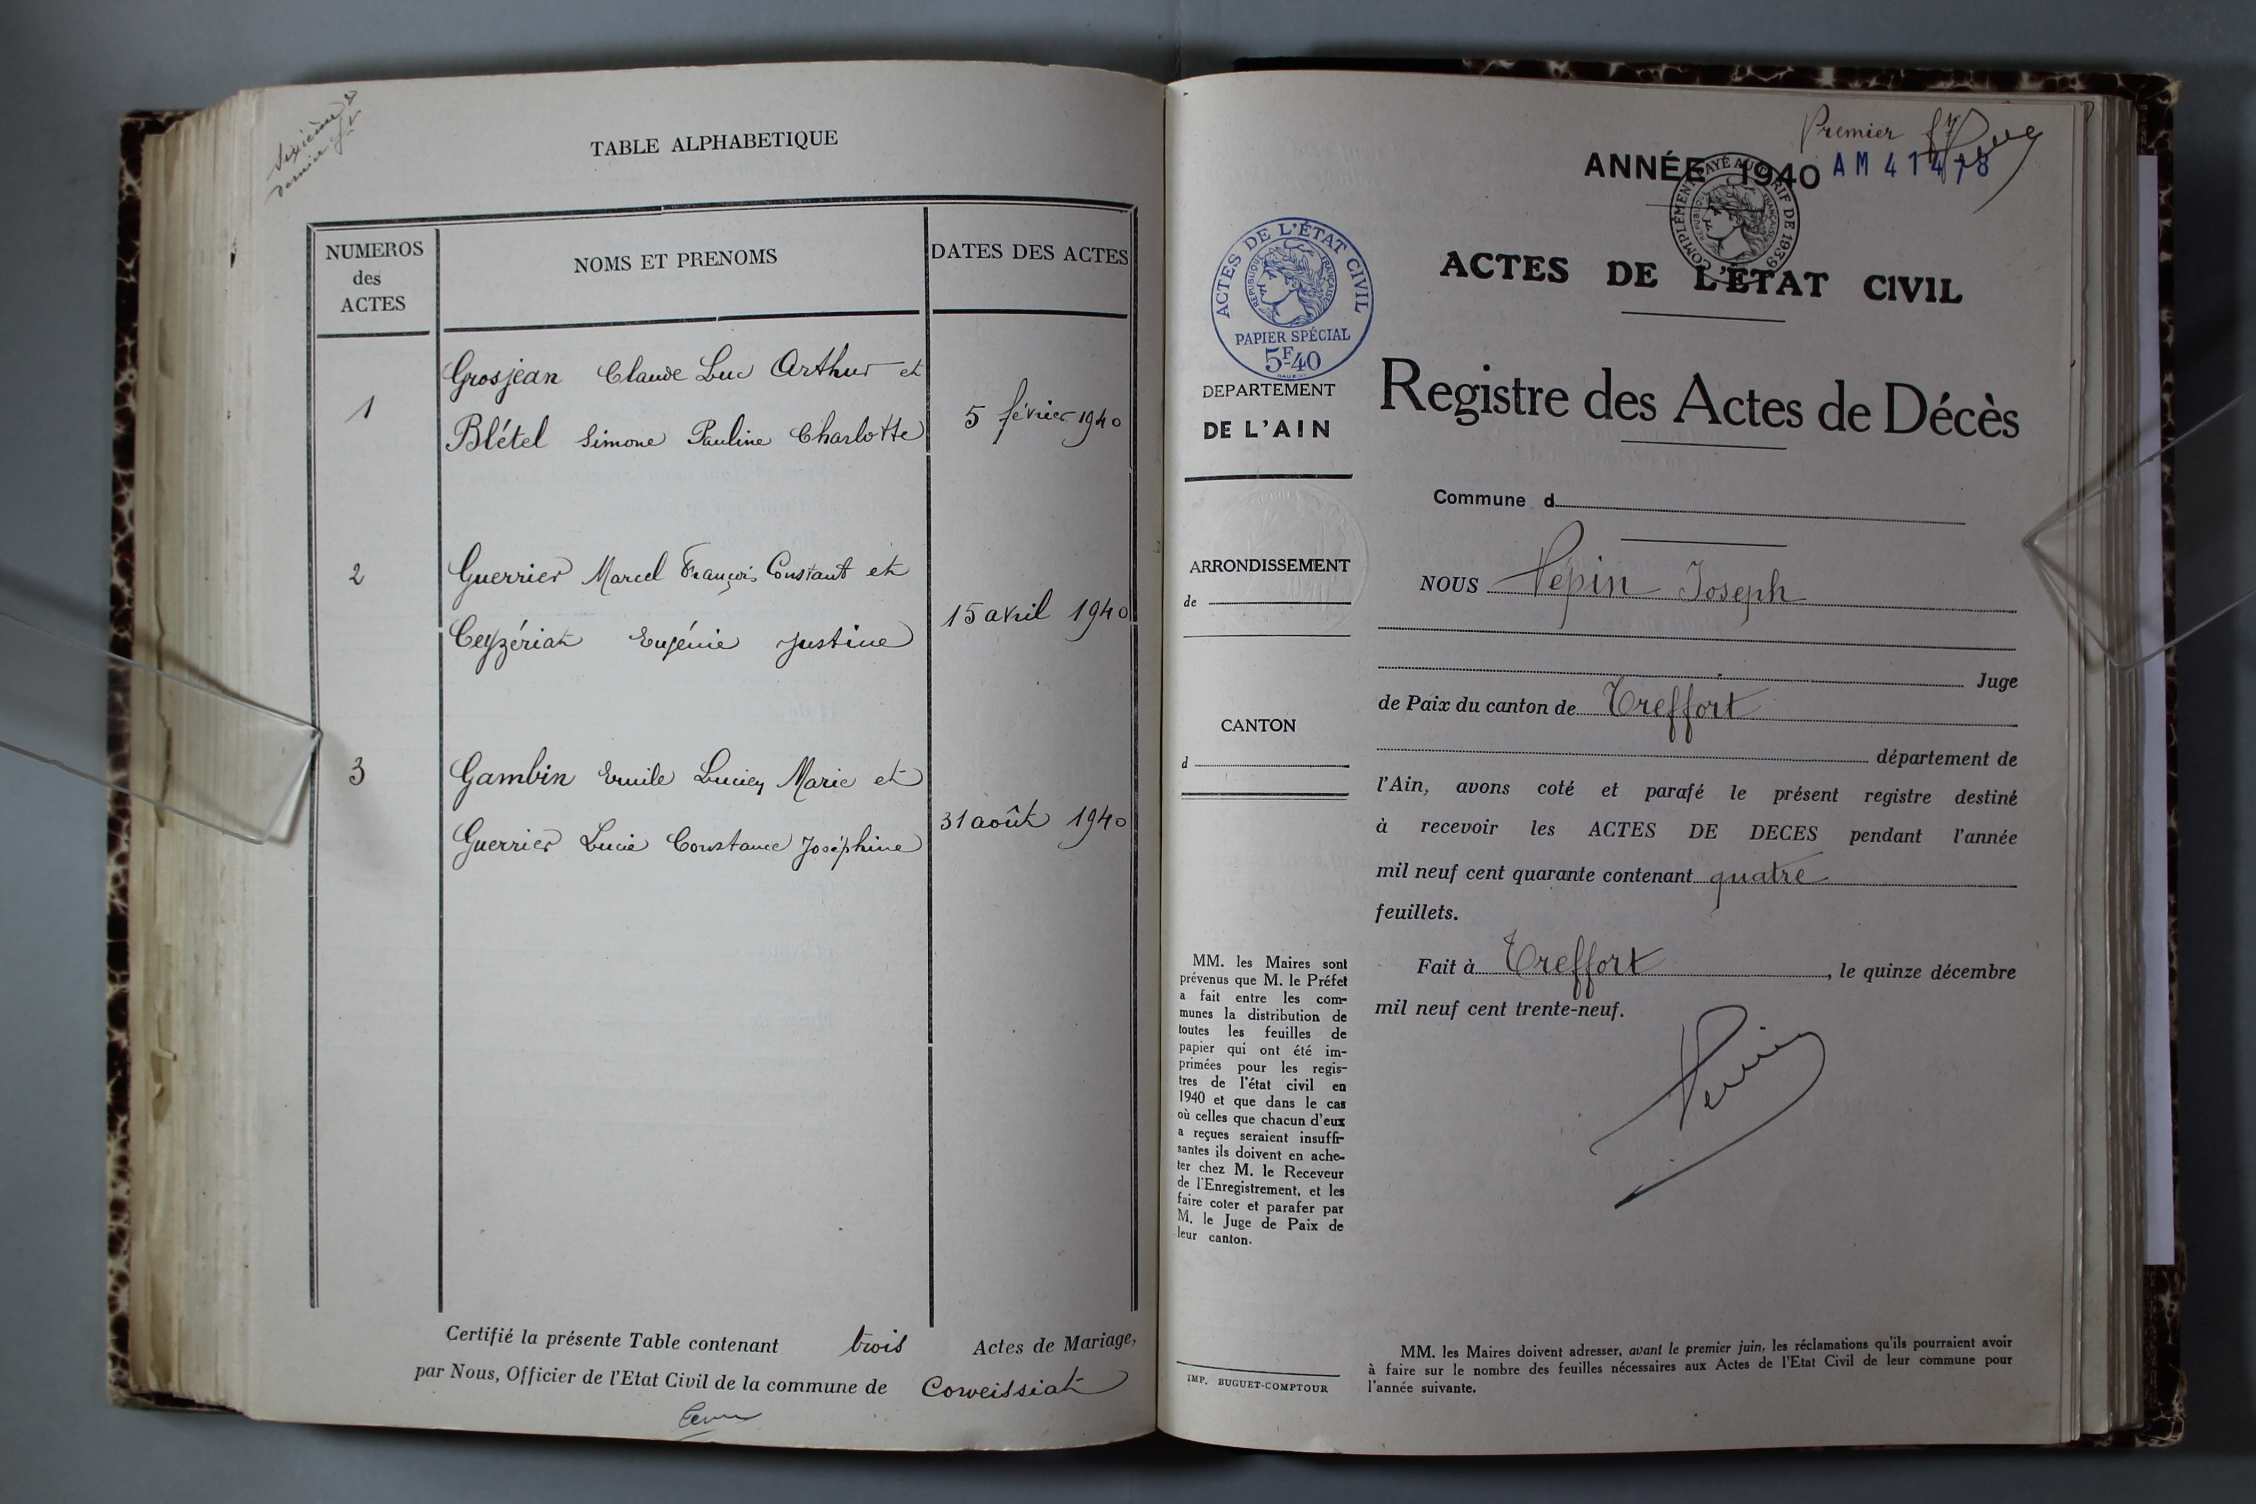 Sixième &
dernier
TABLE ALPHABETIQUE
NUMEROS
des
ACTES
NOMS ET PRENOMS
DATES DES ACTES
1
Grosjean Claude Luc Arthur et
Blétel Simone Pauline Charlotte
5 février 1940
2
Guerrier Marcel François Constant et
Ceyzériat Eugénie Justine
15 avril 1940
3
Gambin Emile Lucien Marie et
Guerrier Lucie Constance Joséphine
31 août 1940
Certifié la présente Table contenant trois Actes de Mariage,
par Nous, Officier de l'Etat Civil de la commune de Corveissiat
Premier
ANNÉE 1940
AM 41478
COMPLÉMENT PAYÉ AU TARIF DE 1939
RÉPUBLIQUE FRANÇAISE
ACTES DE L'ÉTAT CIVIL
ACTES DE L'ÉTAT CIVIL
RÉPUBLIQUE FRANÇAISE
PAPIER SPÉCIAL
5F.40
DEPARTEMENT
DE L'AIN
ARRONDISSEMENT
de
CANTON
d
Registre des Actes de Décès
Commune d
NOUS Pépin Joseph
Juge
de Paix du canton de Treffort
département de
l'Ain, avons coté et parafé le présent registre destiné
à recevoir les ACTES DE DECES pendant l'année
mil neuf cent quarante contenant quatre
feuillets.
Fait à Treffort, le quinze décembre
mil neuf cent trente-neuf.
MM. les Maires sont
prévenus que M. le Préfet
a fait entre les com-
munes la distribution de
toutes les feuilles de
papier qui ont été im-
primées pour les regis-
tres de l'état civil en
1940 et que dans le cas
où celles que chacun d'eux
a reçues seraient insuffi-
santes ils doivent en ache-
ter chez M. le Receveur
de l'Enregistrement, et les
faire coter et parafer par
M. le Juge de Paix de
leur canton.
IMP. BUGUET-COMPTOUR
MM. les Maires doivent adresser, avant le premier juin, les réclamations qu'ils pourraient avoir
à faire sur le nombre des feuilles nécessaires aux Actes de l'Etat Civil de leur commune pour
l'année suivante.